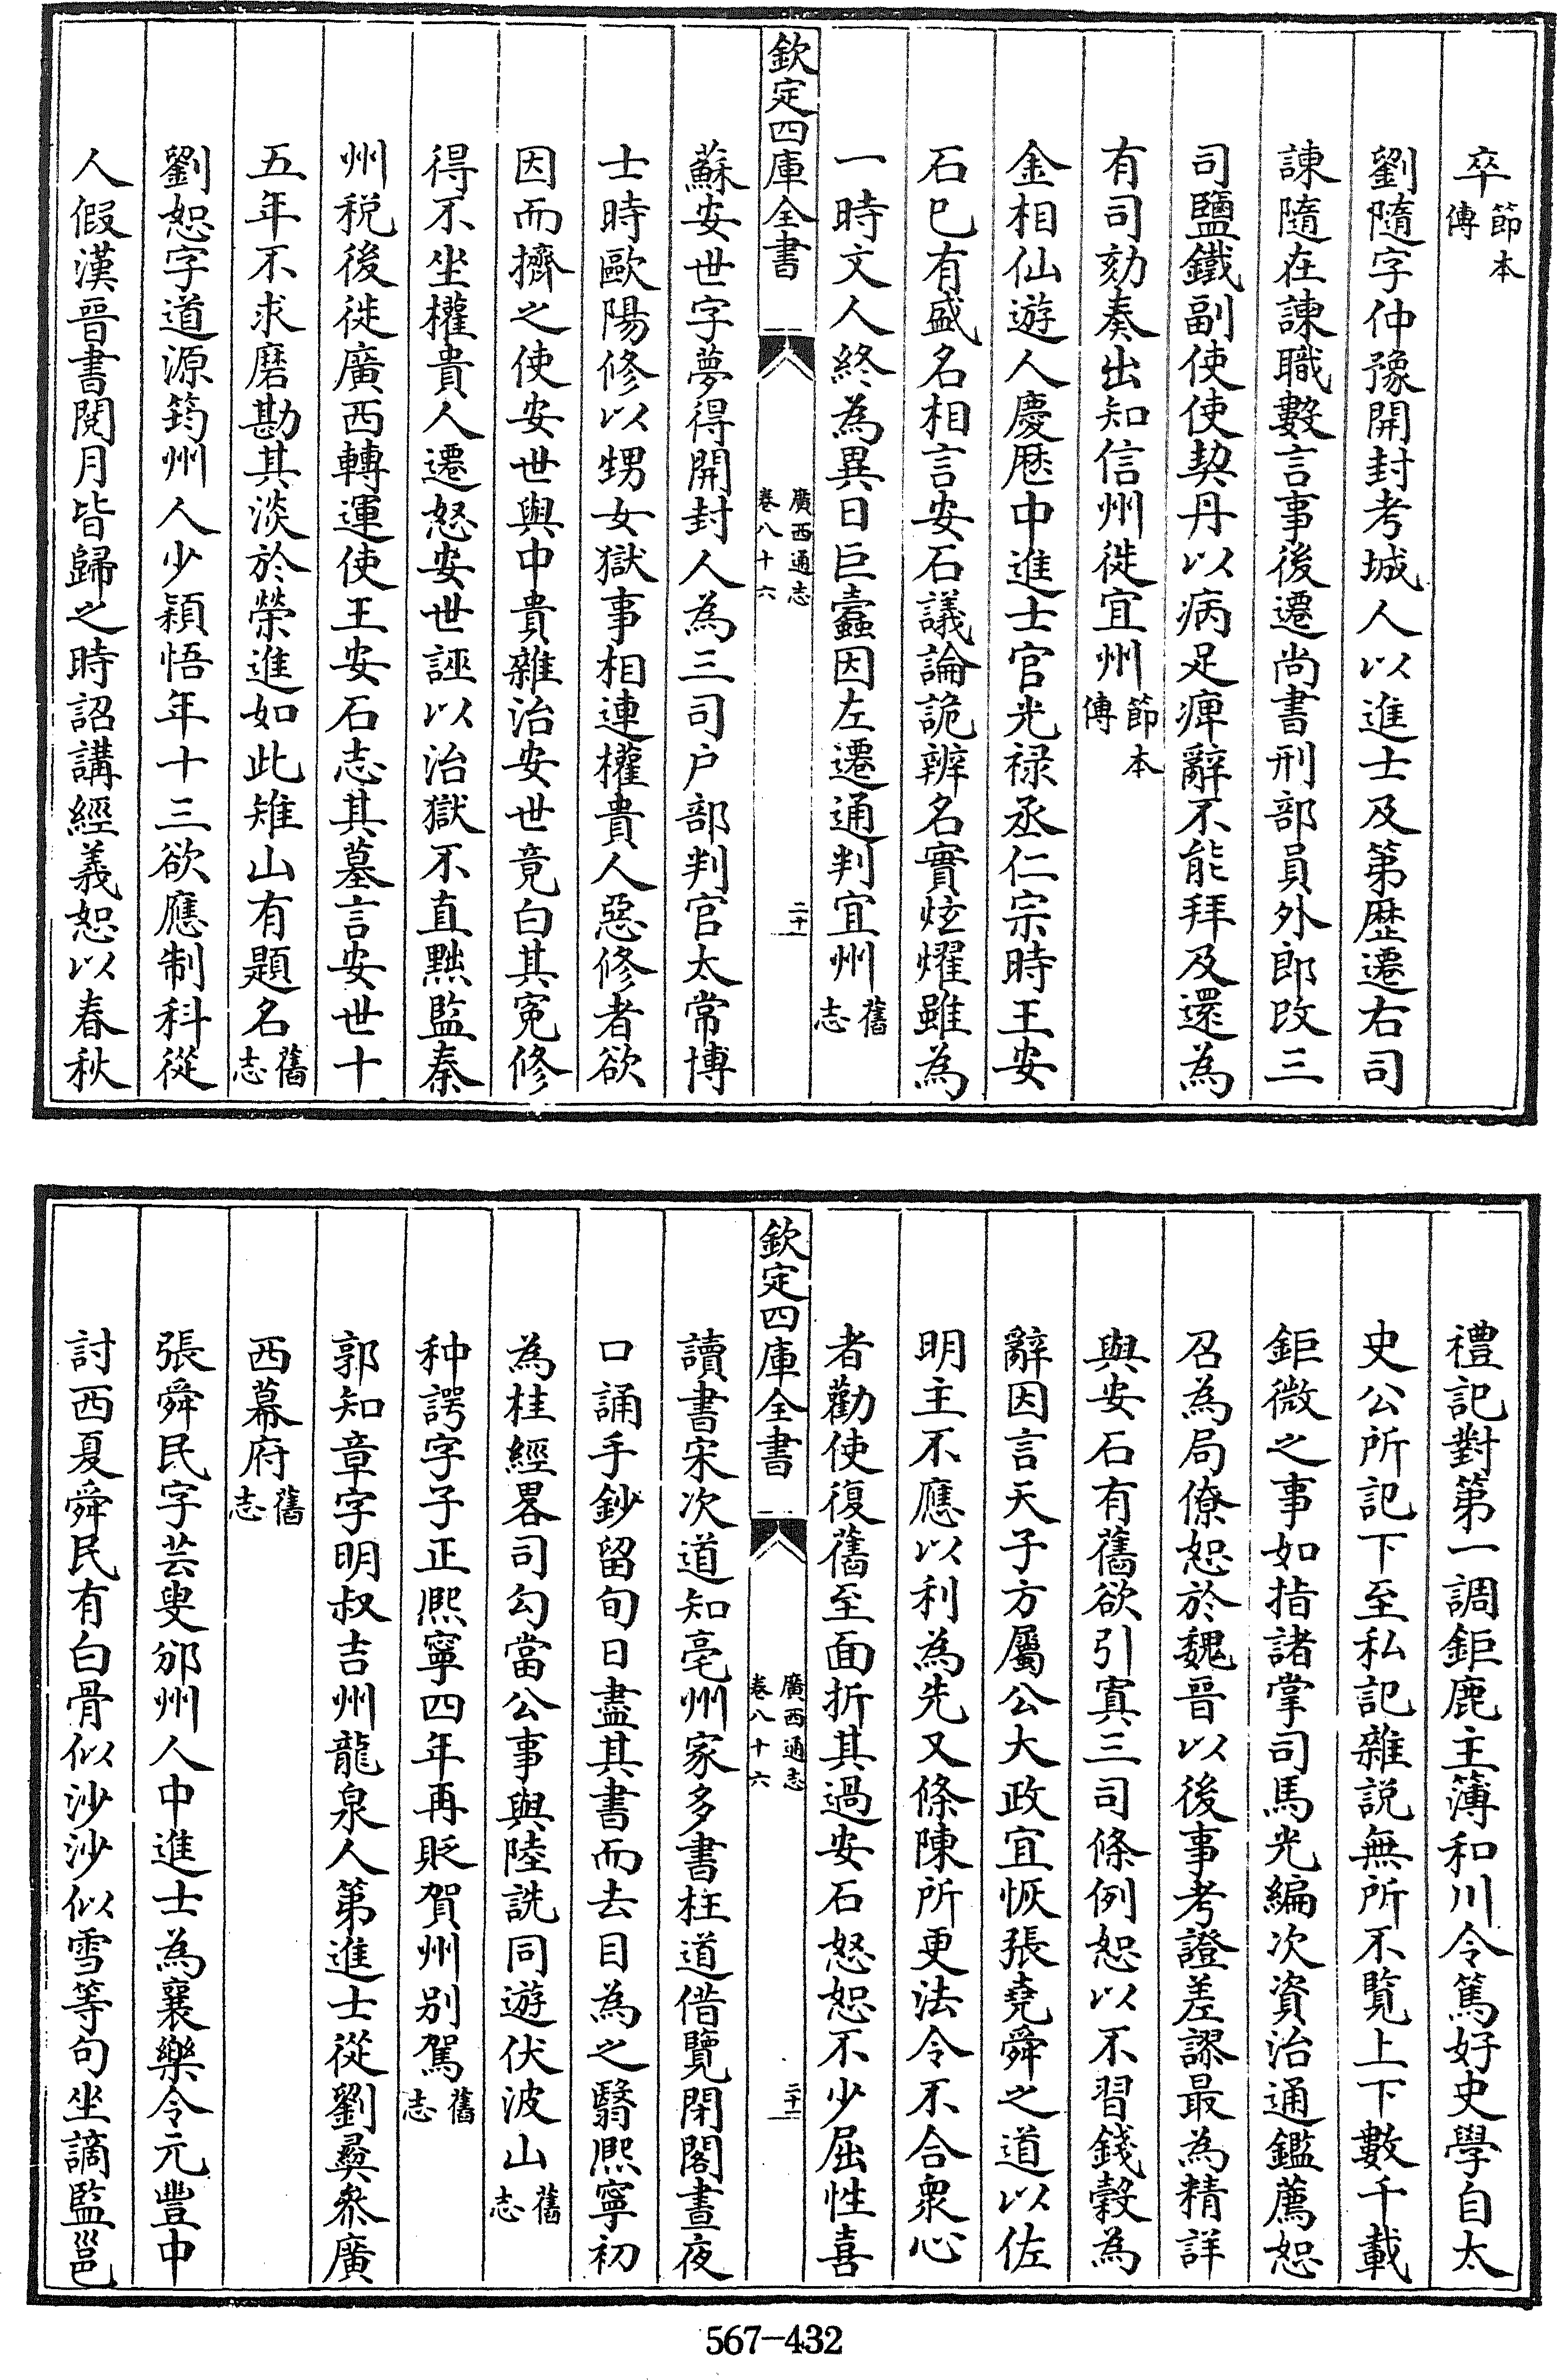 卒節本傳
劉隨字仲豫開封考城人以進士及第歴遷右司
諫隨在諫職數言事後遷尚書刑部員外郎改三
司鹽鐵副使使契丹以病足痺辭不能拜及還為
有司劾奏出知信州徙宜州節本傳
金相仙遊人慶厯中進士官光禄丞仁宗時王安
石已有盛名相言安石議論詭辨名實炫燿雖為
一時文人終為異日巨蠧因左遷通判宜州舊志
欽定四庫全書 廣西通志 卷八十六 二十
蘇安世字夢得開封人為三司户部判官太常博
士時歐陽修以甥女獄事相連權貴人惡修者欲
因而擠之使安世與中貴雜治安世竟白其寃修
得不坐權貴人遷怒安世誣以治獄不直黜監泰
州税後徙廣西轉運使王安石志其墓言安世十
五年不求磨勘其淡於榮進如此雉山有題名舊志
劉恕字道源筠州人少穎悟年十三欲應制科從
人假漢晉書閱月皆歸之時詔講經義恕以春秋
禮記對第一調鉅鹿主簿和川令篤好史學自太
史公所記下至私記雜説無所不覧上下數千載
鉅微之事如指諸掌司馬光編次資治通鑑薦恕
召為局僚恕於魏晉以後事考證差謬最為精詳
與安石有舊欲引寘三司條例恕以不習錢穀為
辭因言天子方屬公大政宜恢張堯舜之道以佐
明主不應以利為先又條陳所更法令不合衆心
者勸使復舊至面折其過安石怒恕不少屈性喜
欽定四庫全書 廣西通志 卷八十六 二十一
讀書宋次道知亳州家多書枉道借覽閉閣晝夜
口誦手鈔留旬日盡其書而去目為之翳熙寧初
為桂經畧司勾當公事與陸詵同遊伏波山舊志
种諤字子正熙寧四年再貶賀州别駕舊志
郭知章字明叔吉州龍泉人第進士從劉彛叅廣
西幕府舊志
張舜民字芸叟邠州人中進士為襄樂令元豐中
討西夏舜民有白骨似沙沙似雪等句坐謫監邕
567-432